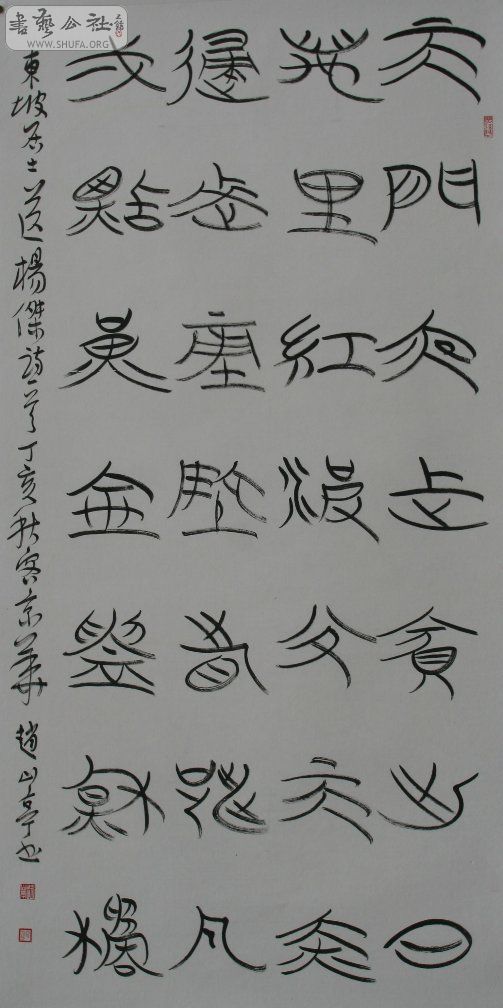 書藝公社
WWW.SHUFA.ORG
天門夜上賓出日
萬里紅波半天赤
歸來平地看跳丸
弌點黃金鑄秋橘
東坡居士送楊傑詩一首丁亥秋客京華 趙山亭書